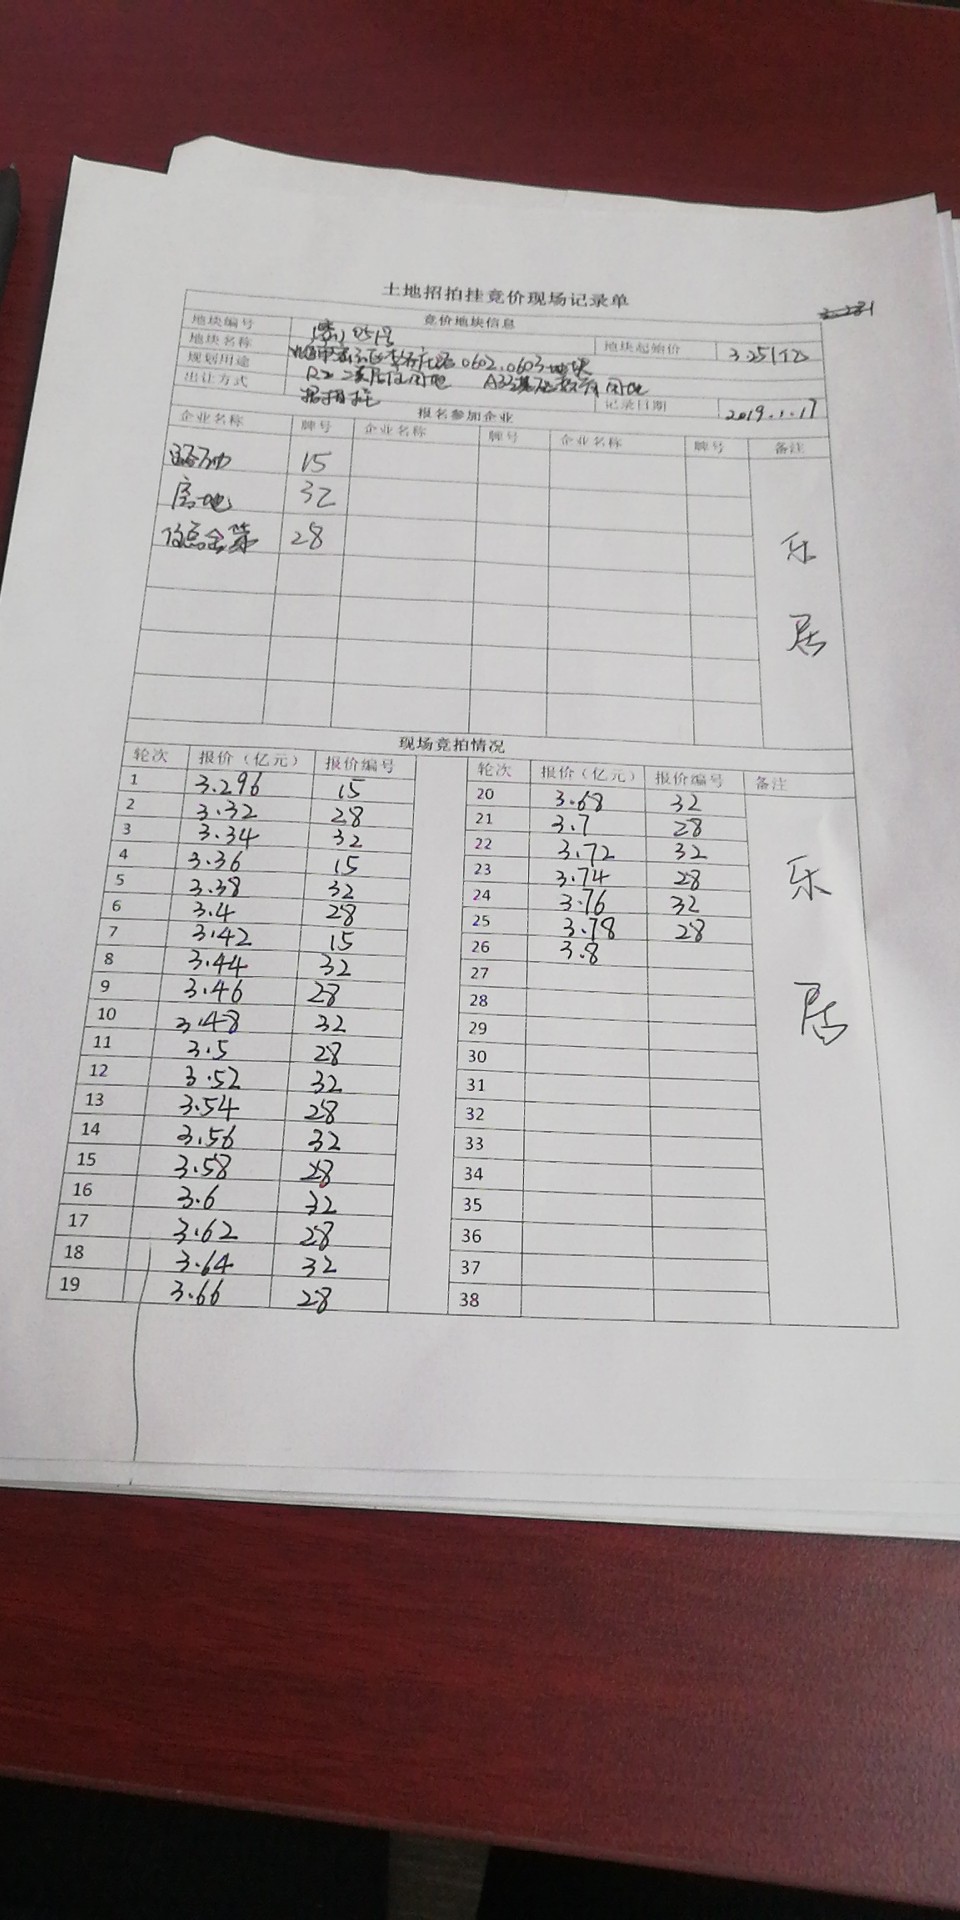 土地招拍挂竞价现场记录单
竞价地块信息
地块编号 051号
地块名称 0602、0603地块 地块起始价 3.25亿
规划用途 R2二类居住用地 A33基础教育用地
出让方式 招拍挂 记录日期 2019.1.17
报名参加企业
企业名称 牌号 企业名称 牌号 企业名称 牌号 备注
15
房地 32
28
乐
居
现场竞拍情况
轮次 报价（亿元） 报价编号 轮次 报价（亿元） 报价编号 备注
1 3.296 15 20 3.68 32
2 3.32 28 21 3.7 28
3 3.34 32 22 3.72 32
4 3.36 15 23 3.74 28
5 3.38 32 24 3.76 32
6 3.4 28 25 3.78 28
7 3.42 15 26 3.8
8 3.44 32 27
9 3.46 28 28
10 3.48 32 29
11 3.5 28 30
12 3.52 32 31
13 3.54 28 32
14 3.56 32 33
15 3.58 28 34
16 3.6 32 35
17 3.62 28 36
18 3.64 32 37
19 3.66 28 38
乐
居